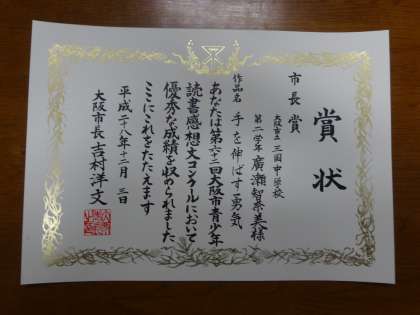 賞状
市長賞
大阪市立三国中学校
第二学年 廣瀬智奈美様
作品名 手を伸ばす勇気
あなたは第六十二回大阪市青少年
読書感想文コンクールにおいて
優秀な成績を収められました
ここにこれをたたえます
平成二十八年十二月三日
大阪市長 吉村洋文